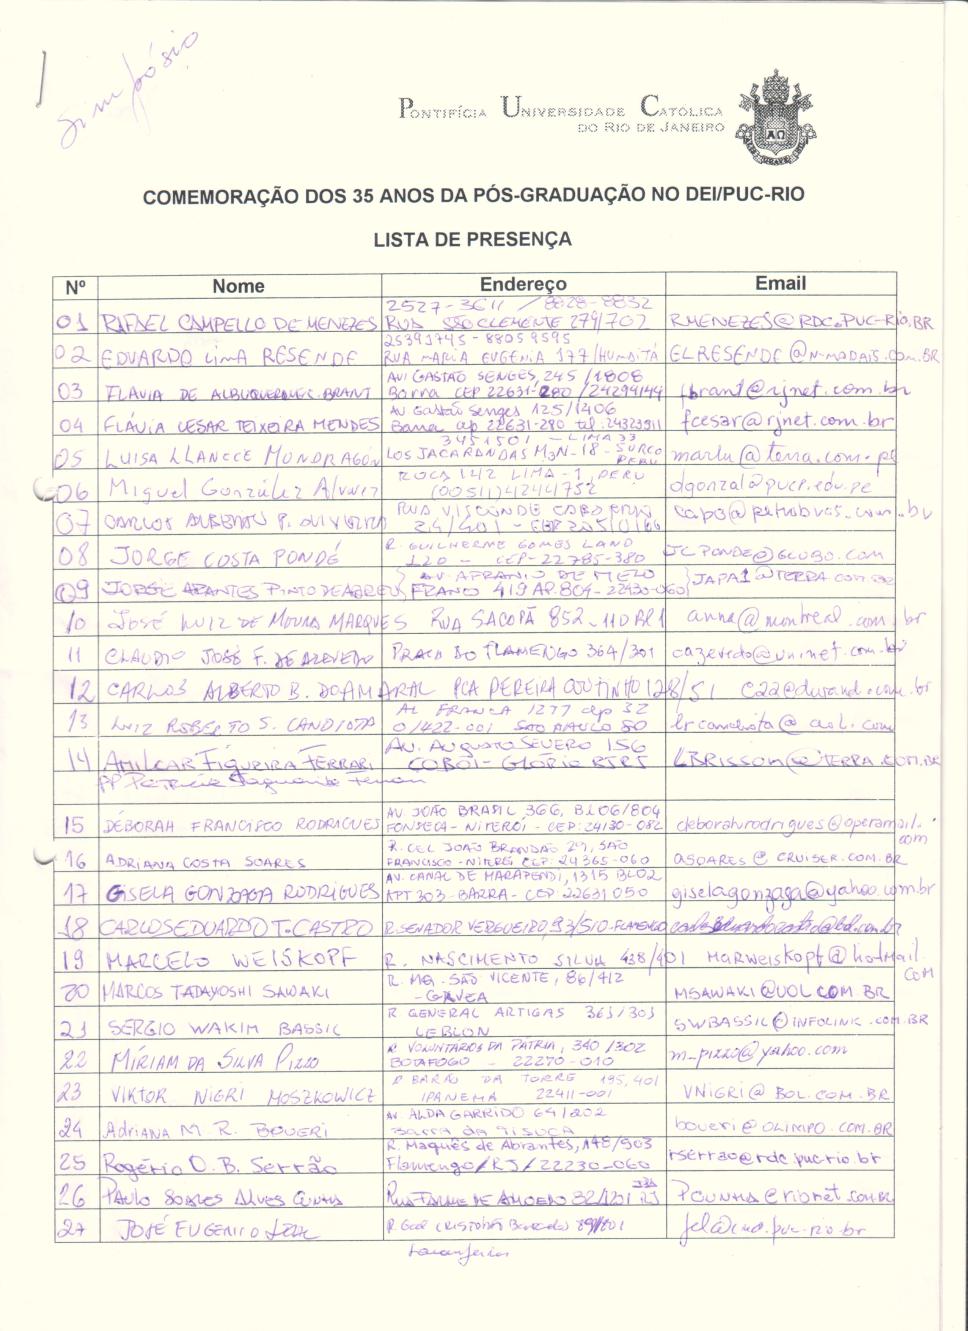 Simpósio
PONTIFÍCIA UNIVERSIDADE CATÓLICA
DO RIO DE JANEIRO
COMEMORAÇÃO DOS 35 ANOS DA PÓS-GRADUAÇÃO NO DEI/PUC-RIO
LISTA DE PRESENÇA
Nº Nome Endereço Email
2527-3611 / 8828-8832
01 RAFAEL CAMPELLO DE MENEZES RUA SÃO CLEMENTE 279/702 RMENEZES@RDC.PUC-RIO.BR
25391745 - 88059595
02 EDUARDO LIMA RESENDE RUA MARIA EUGENIA 177/HUMAITÁ ELRESENDE@N-MODAIS.COM.BR
AVI GASTÃO SENGES, 245 /1808
03 FLAVIA DE ALBUQUERQUE BRANT Barra CEP 22631-280 /24294144 fbrant@rjnet.com.br
AV Gastão Senges 125/1406
04 FLÁVIA CESAR TEIXEIRA MENDES Barra cep 22631-280 tel. 24323911 fcesar@rjnet.com.br
3451501 - LIMA 33
05 LUISA LLANCCE MONDRAGÓN LOS JACARANDAS M3N-18 - SURCO PERU marlu@terra.com.pe
ROCA 142 LIMA-1, PERU
06 Miguel González Alvarez (00511)4244752 dgonzal@pucp.edu.pe
RUA VISCONDE CABO FRIO
07 CARLOS ALBERTO P. OLIVEIRA capo@petrobras.com.br
R. GUILHERME GOMES LAND
08 JORGE COSTA PONDÉ 120 - CEP-22785-380 JCPONDE@GLOBO.COM
AV. AFRANIO DE MELO
09 JORGE ABANTES PINTO DE ABREU FRANCO 419 AP. 804-22430-060 JAPA1@TERRA.COM.BR
10 JOSÉ LUIZ DE MOURA MARQUES RUA SACOPÃ 852-110 BL1 anna@montreal.com.br
11 CLAUDIO JOSÉ F. DE AZEVEDO PRAIA DO FLAMENGO 364/301 cazevedo@uninet.com.br
12 CARLOS ALBERTO B. DO AMARAL PCA PEREIRA COUTINHO 128/51 C22@durand.com.br
AL FRANCA 1277 ap 32
13 LUIZ ROBERTO S. CANDIOTA 01422-001 SAO PAULO lrcandiota@aol.com
AV. AUGUSTO SEVERO 156
14 AMILCAR FIGUEIRA FERRARI COBOI - GLÓRIA RJ RJ LBRISSON@TERRA.COM.BR
PP Patricia
AV JOÃO BRASIL 366, BL06/804
15 DÉBORAH FRANCISCO RODRIGUES FONSECA - NITERÓI - CEP: 24130-082 deborahrodrigues@operamail.com
R. CEL JOÃO BRANDÃO 29, SÃO
16 ADRIANA COSTA SOARES FRANCISCO - NITERÓI CEP: 24365-060 ASOARES@CRUISER.COM.BR
AV. CANAL DE MARAPENDI, 1315 BL02
17 GISELA GONZAGA RODRIGUES APT 303 - BARRA - CEP 22631 050 giselagonzaga@yahoo.com.br
18 CARLOS EDUARDO T. CASTRO R. SENADOR VERGUEIRO, 93/510-FLAMENGO
19 MARCELO WEISKOPF R. NASCIMENTO SILVA 438/401 MARWEISKOPF@hotmail.com
R. MQ. SÃO VICENTE, 86/412
20 MARCOS TADAYOSHI SAWAKI - GÁVEA MSAWAKI@UOL COM BR
R GENERAL ARTIGAS 361/303
21 SERGIO WAKIM BASSIL LEBLON SWBASSIL@INFOLINK.COM.BR
R VOLUNTÁRIOS DA PÁTRIA, 340/302
22 MÍRIAM DA SILVA PIZZO BOTAFOGO - 22270-010 m_pizzo@yahoo.com
R BARÃO DA TORRE 195, 401
23 VIKTOR NIGRI MOSZKOWICZ IPANEMA 22411-001 VNIGRI@BOL.COM.BR
AV. ALDA GARRIDO 64/202
24 Adriana M. R. BOUERI BARRA DA TIJUCA boueri@OLIMPO.COM.BR
R. Marquês de Abrantes, 148/903
25 Rogério O. B. Serrão Flamengo/RJ/22230-060 rserrao@rdc.puc-rio.br
26 PAULO SOARES ALVES CUNHA RUA FARME DE AMOEDO 82/1201 RJ PCUNHA@ribnet.com.br
27 JOSÉ EUGENIO LEAL R Gal CRISTÓVÃO Barcelos jel@ind.puc-rio.br
Laranjeiras